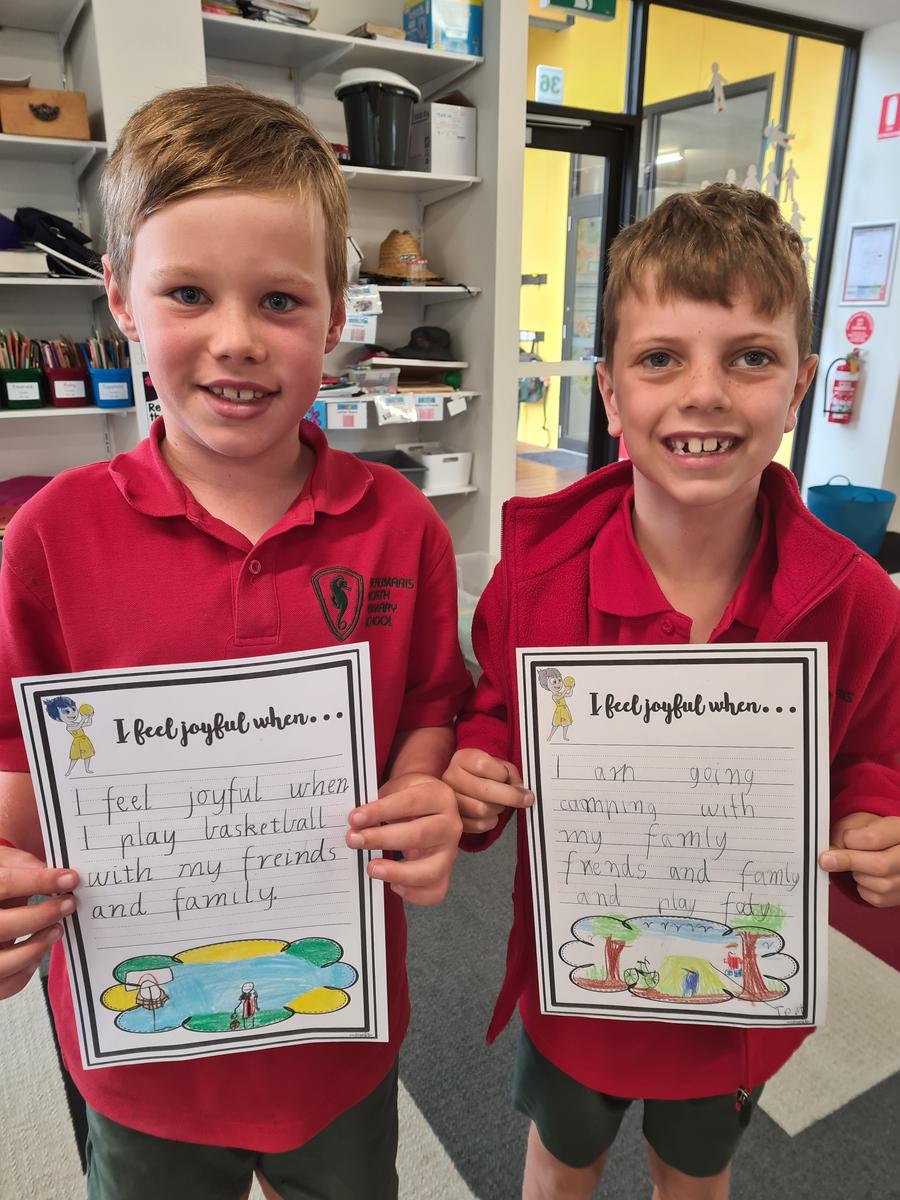 36
BEAUMARIS
NORTH
PRIMARY
SCHOOL
I feel joyful when...
I feel joyful when
I play basketball
with my freinds
and family.
I feel joyful when...
I am going
camping with
my famly
friends and famly
and play foty